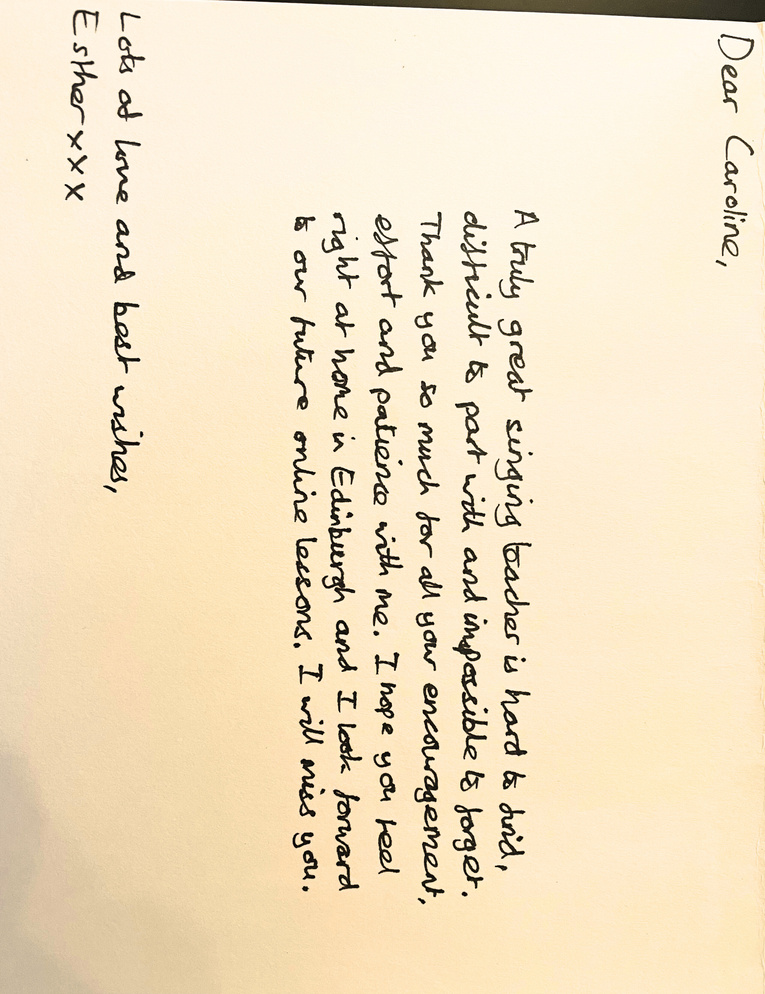 Dear Caroline,
A truly great singing teacher is hard to find,
difficult to part with and impossible to forget.
Thank you so much for all your encouragement,
effort and patience with me. I hope you feel
right at home in Edinburgh and I look forward
to our future online lessons. I will miss you.
Lots of love and best wishes,
Esther xxx